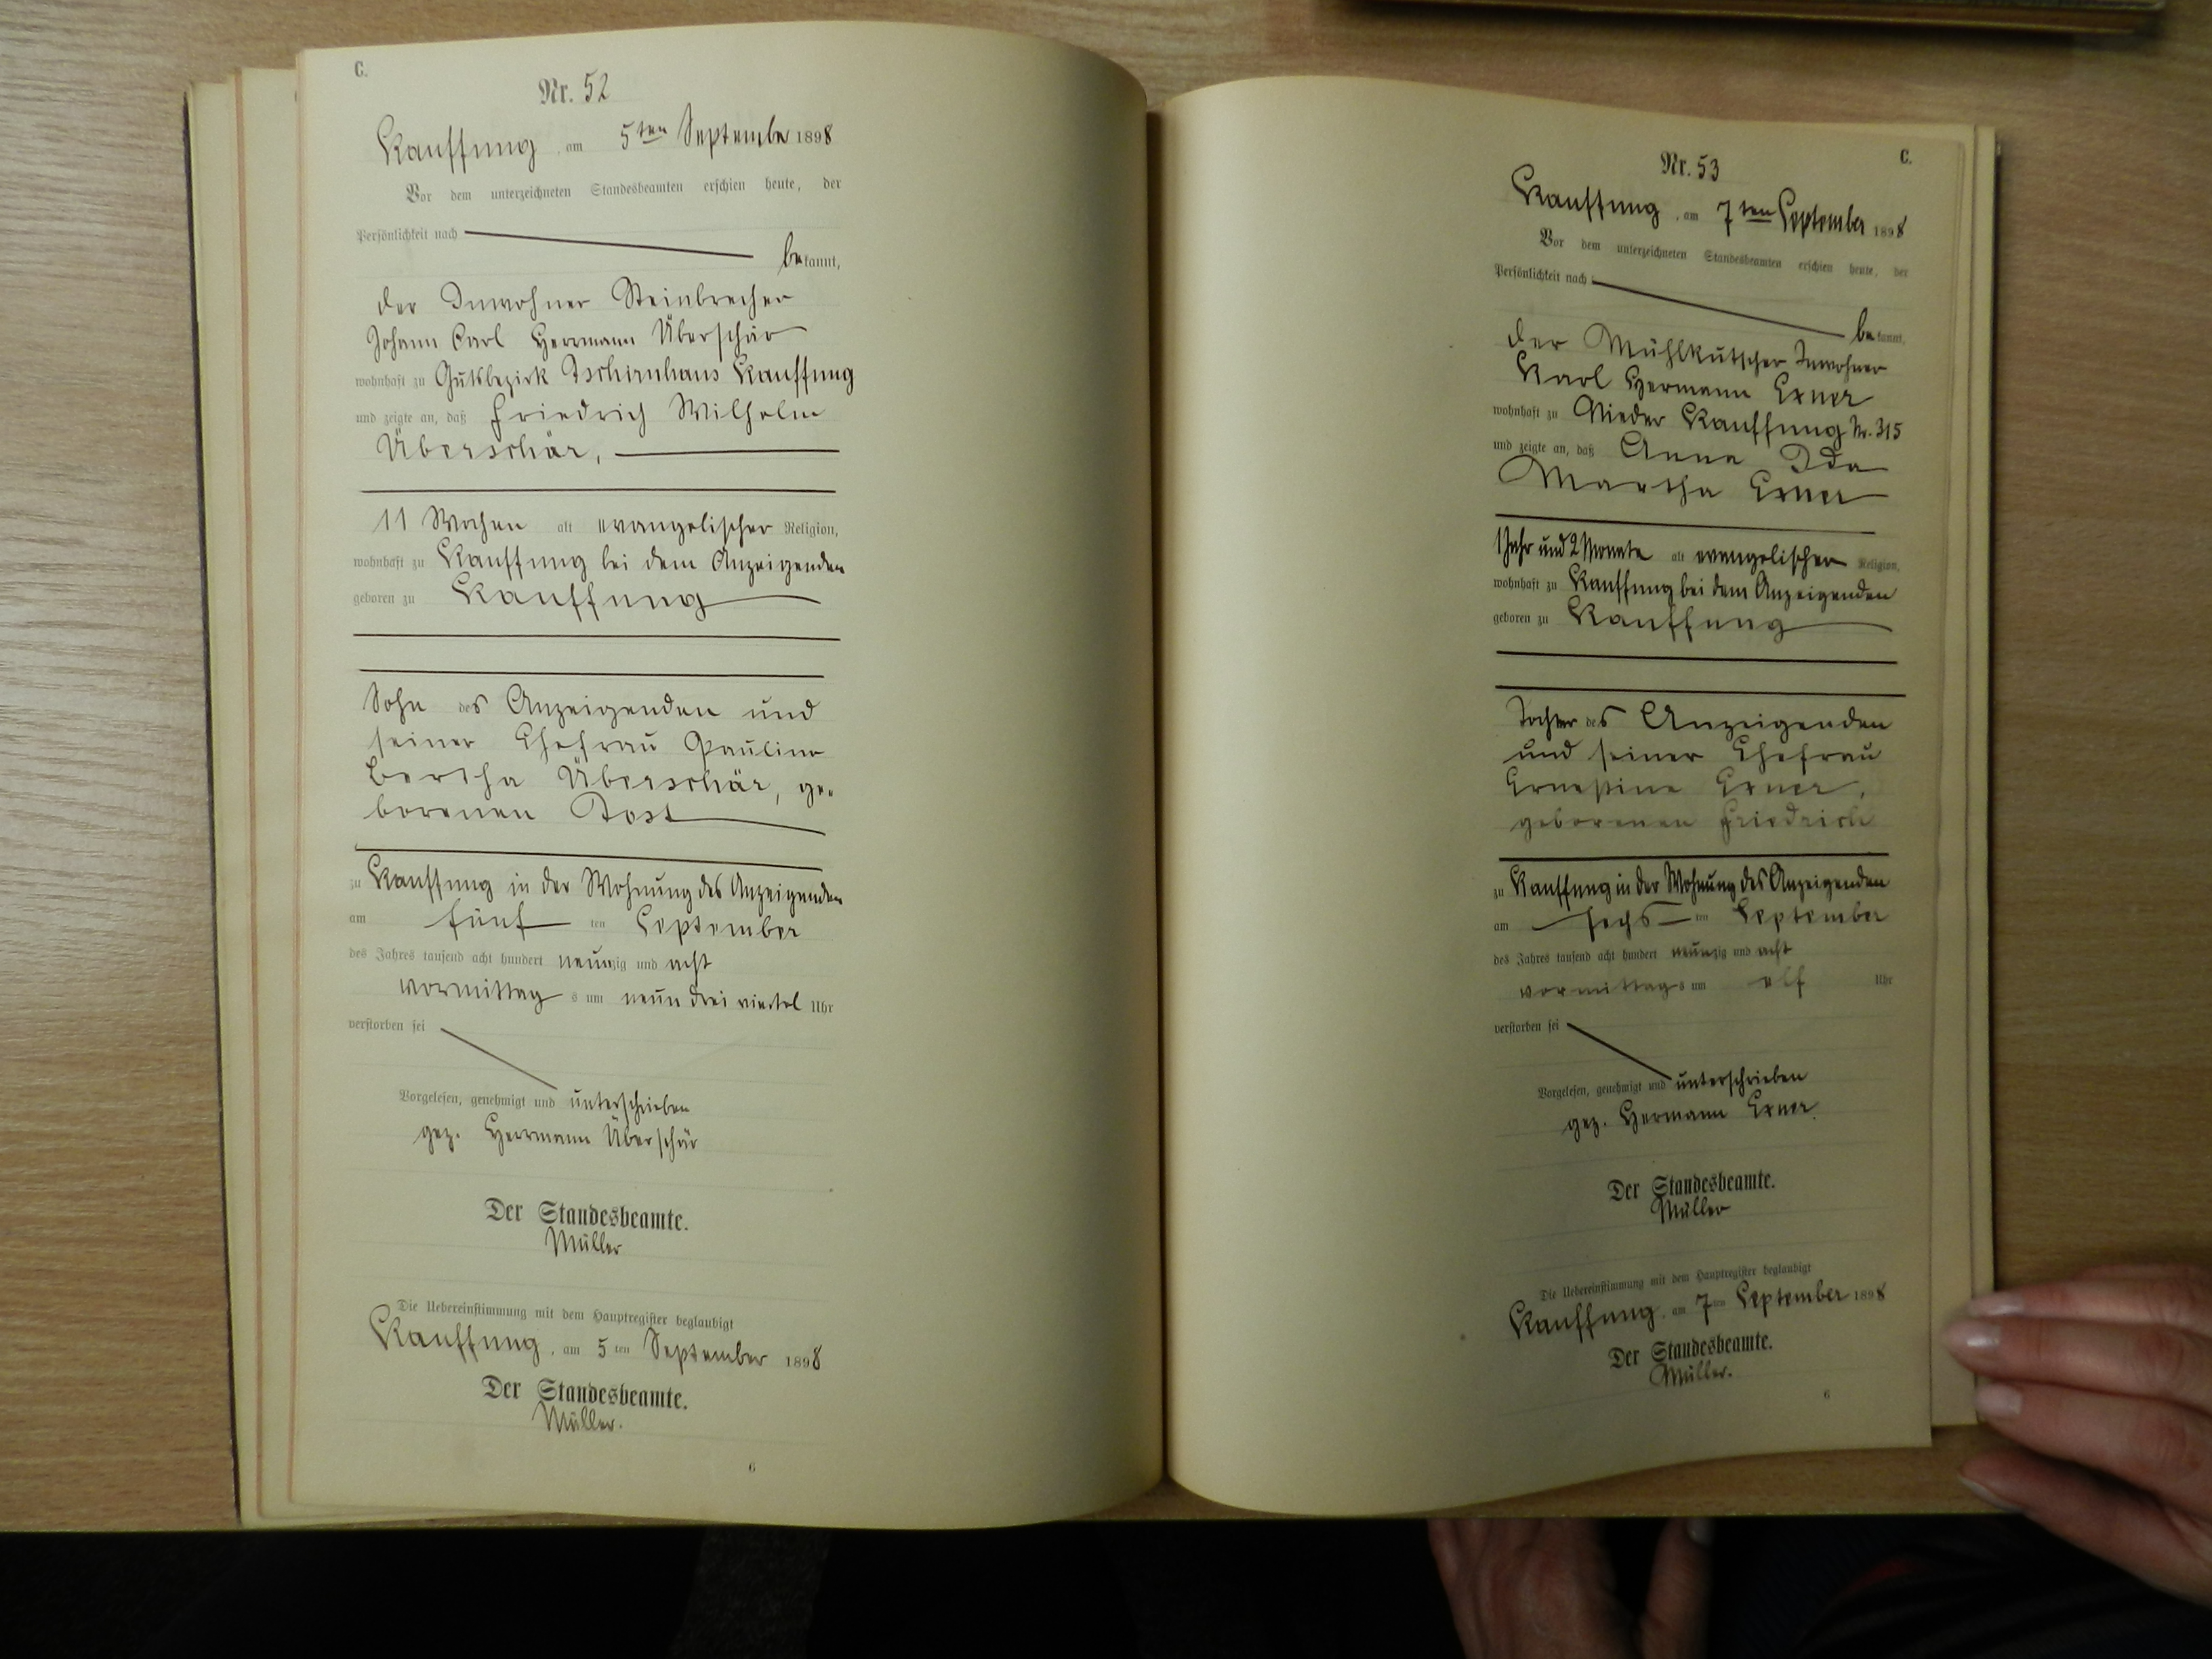 C.
Nr. 52
Kauffung, am 5ten September 1898
Vor dem unterzeichneten Standesbeamten erschien heute, der
Persönlichkeit nach
bekannt,
der Inwohner Steinbrecher
Johann Carl Herrmann Überschär
wohnhaft zu Gutsbezirk Tschirnhaus Kauffung
und zeigte an, daß Friedrich Wilhelm
Überschär,
11 Wochen alt evangelischer Religion,
wohnhaft zu Kauffung bei dem Anzeigenden
geboren zu Kauffung
Sohn des Anzeigenden und
seiner Ehefrau Pauline
Bertha Überschär, ge-
borenen Tost
zu Kauffung in der Wohnung des Anzeigenden
am fünf ten September
des Jahres tausend acht hundert neunzig und acht
vormittags um neun drei viertel Uhr
verstorben sei
Vorgelesen, genehmigt und unterschrieben
gez. Herrmann Überschär
Der Standesbeamte.
Müller
Die Uebereinstimmung mit dem Hauptregister beglaubigt
Kauffung, am 5ten September 1898
Der Standesbeamte.
Müller.
6
C.
Nr. 53
Kauffung, am 7ten September 1898
Vor dem unterzeichneten Standesbeamten erschien heute, der
Persönlichkeit nach
bekannt,
der Mühlkutscher Inwohner
Karl Hermann Exner
wohnhaft zu Nieder Kauffung Nr. 315
und zeigte an, daß Anna Ida
Martha Exner
1 Jahr und 2 Monate alt evangelischer Religion,
wohnhaft zu Kauffung bei dem Anzeigenden
geboren zu Kauffung
Tochter des Anzeigenden
und seiner Ehefrau
Ernestine Exner,
geborenen Friedrich
zu Kauffung in der Wohnung des Anzeigenden
am sechs ten September
des Jahres tausend acht hundert neunzig und acht
vormittags um elf Uhr
verstorben sei
Vorgelesen, genehmigt und unterschrieben
gez. Hermann Exner.
Der Standesbeamte.
Müller
Die Uebereinstimmung mit dem Hauptregister beglaubigt
Kauffung, am 7ten September 1898
Der Standesbeamte.
Müller.
6